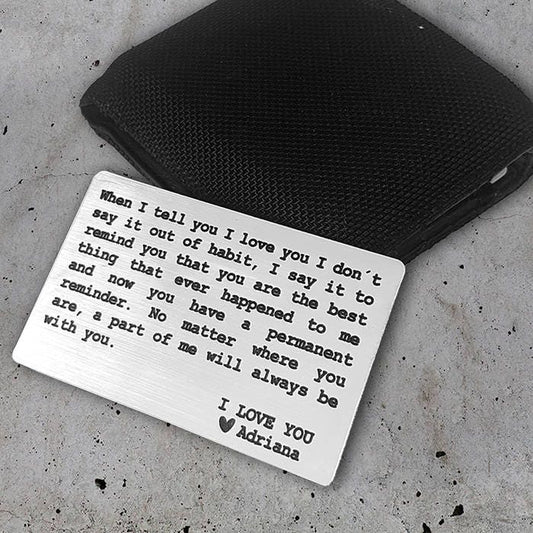 When I tell you I love you I don´t
say it out of habit, I say it to
remind you that you are the best
thing that ever happened to me
and now you have a permanent
reminder. No matter where you
are, a part of me will always be
with you.
I LOVE YOU
♥Adriana